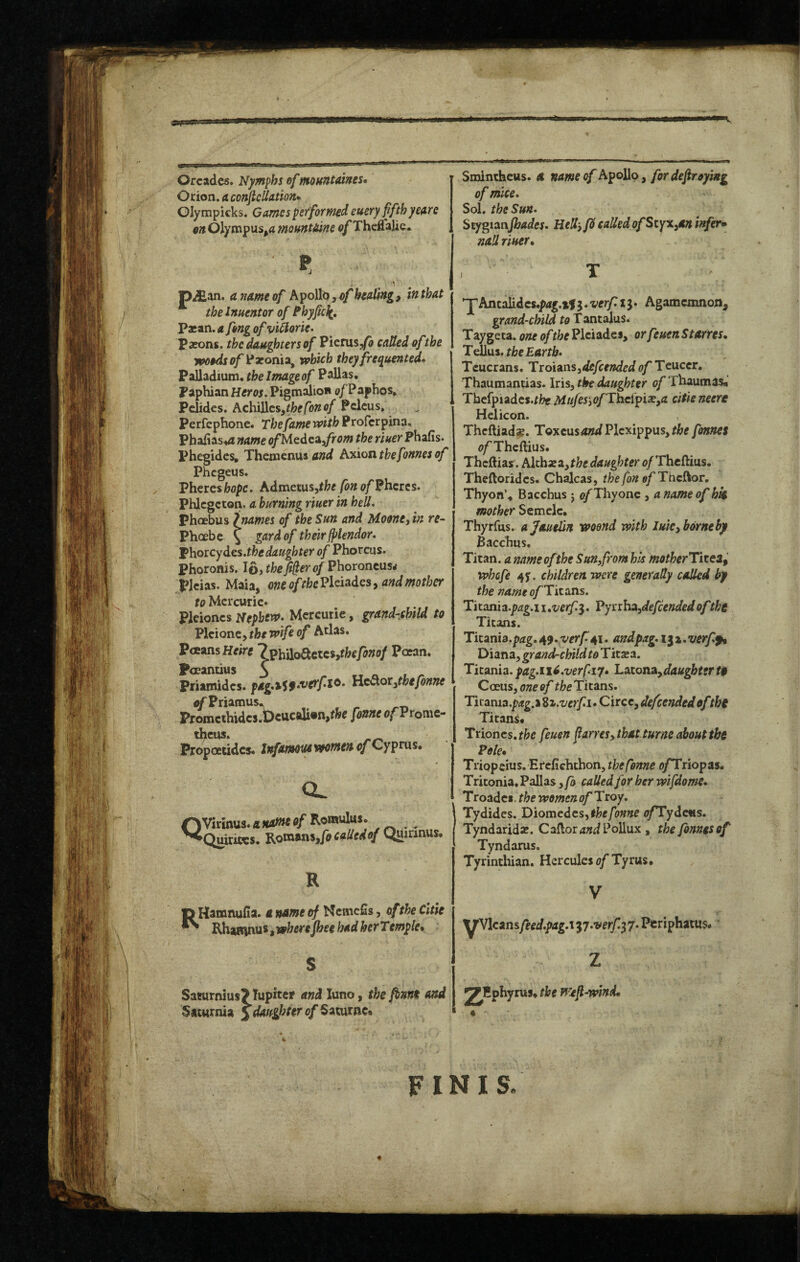 Oreades. Nymphs of mountaines.
Orion. a constellation.
Olympicks. Games performed euery fifth yeare
on Olympus, a mountaine of Thessalie.
P
PÆan. a name of Apollo, of healing, in that
the Inuentor of Physick.
Pæan. a song of victorie.
Pæons. the daughters of Pierus, so called of the
woods of Pæonia, which they frequented.
Palladium. the Image of Pallas.
Paphian Heros. Pigmalion of Paphos.
Pelides. Achilles, the son of Peleus.
Persephone. The same with Proserpina.
Phasias. a name of Medea, from the riuer Phasis.
Phegides. Themenus and Axion the sonnes of
Phegeus.
Pheres hope. Admetus, the son of Pheres.
Phlegeton. a burning riuer in hell.
Phœbus } names of the Sun and Moone, in re-
Phœbe } gard of their splendor.
Phorcydes. the daughter of Phorcus.
Phoronis. Iô, the sister of Phoroneus.
Pleias. Maia, one of the Pleiades, and mother
to Mercurie.
Pleiones Nephew. Mercurie, grand-child to
Pleione, the wife of Atlas.
Pœans Heire } Philoctetes, the son of Pœan.
Pœantius }
Priamides. pag.259.vers.10. Hector, the sonne
of Priamus.
Promethides. Deucalion, the sonne of Prome-
theus.
Propœtides. Infamous women of Cyprus.
Q
QVirinus. a name of Romulus.
Quirites. Romans, so called of Quirinus.
R
RHamnusia. a name of Nemesis, of the Citie
Rhamnus, where shee had her Temple.
S
Saturnius } Iupiter and Iuno, the sonne and
Saturnia } daughter of Saturne.
Smintheus. a name of Apollo, for destroying
of mice.
Sol. the Sun.
Stygian shades. Hell; so called of Styx, an infer-
nall riuer.
T
TAntalides. pag.253.vers.13. Agamemnon,
grand-child to Tantalus.
Taygeta. one of the Pleiades, or seuen Starres.
Tellus. the Earth.
Teucrans. Troians, descended of Teucer.
Thaumantias. Iris, the daughter of Thaumas.
Thespiades. the Muses; of Thespiæ, a citie neere
Helicon.
Thestiadæ. Toxeus and Plexippus, the sonnes
of Thestius.
Thestias. Althæa, the daughter of Thestius.
Thestorides. Chalcas, the son of Thestor.
Thyon'. Bacchus; of Thyone, a name of his
mother Semele.
Thyrsus. a Jauelin woond with Iuie, borne by
Bacchus.
Titan. a name of the Sun, from his mother Titea,
whose 45. children were generally called by
the name of Titans.
Titania. pag.11.vers.3. Pyrrha, descended of the
Titans.
Titania. pag.49.vers.41. and pag.132.vers.9,
Diana, grand-child to Titæa.
Titania. pag.116.vers.17. Latona, daughter to
Cœus, one of the Titans.
Titania. pag.282.vers.1. Circe, descended of the
Titans.
Triones. the seuen starres, that turne about the
Pole.
Triopeius. Eresichthon, the sonne of Triopas.
Tritonia. Pallas, so called for her wisdome.
Troades. the women of Troy.
Tydides. Diomedes, the sonne of Tydeus.
Tyndaridæ. Castor and Pollux, the sonnes of
Tyndarus.
Tyrinthian. Hercules of Tyrus.
V
VVlcans seed. pag.137.vers.37. Periphatus.
Z
ZEphyrus. the West-wind.
FINIS.